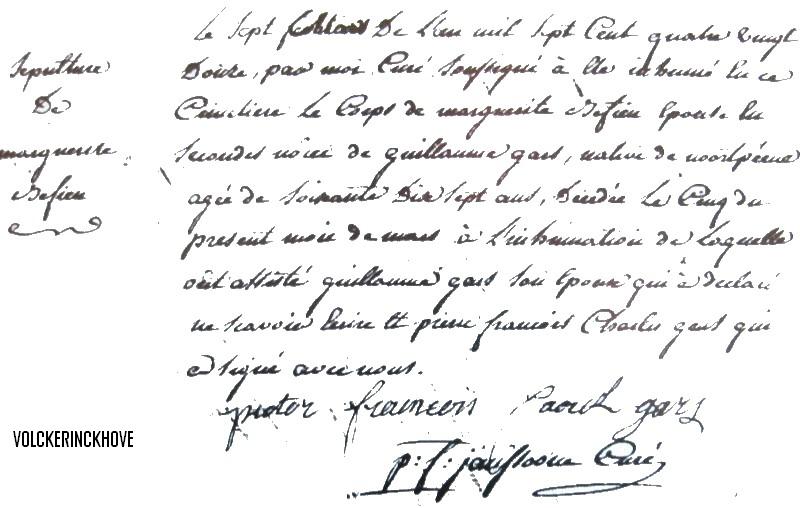 Sepulture
De
marguerite
Defien
Le sept De L'an mil sept Cent quatre vingt
Douze, par moi Curé soussigné à été inhumé en ce
Cimetiere Le Corps de marguerite Defien épouse en
secondes nôces de guillaume gars, native de noordpéene
agée de soixante Dix sept ans, Décédée Le Cinq du
present mois de mars à L'inhumation de Laquelle
ont assisté guillaume gars son Epoux qui à declaré
ne scavoir Ecrire et pierre francois Charles gars qui
a signé avec nous.
pieter francois gars
p: f: Curé
VOLCKERINCKHOVE